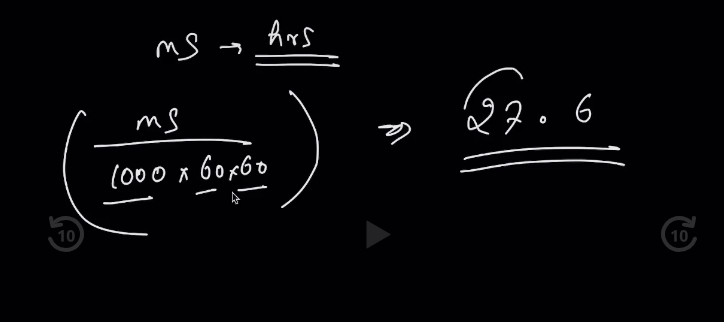 ms → hrs
( ms / 1000 × 60 × 60 ) ⇒ 27.6
10 10